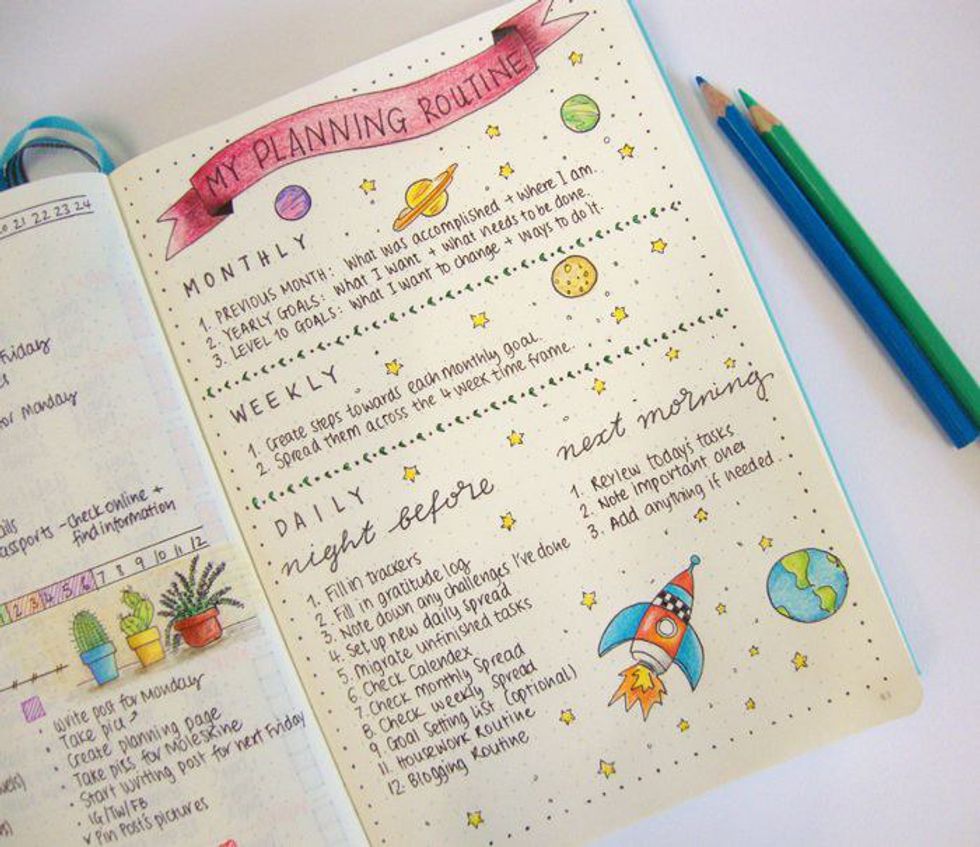 20 21 22 23 24
Friday
for Monday
- check online +
find information
2 3 4 5 6 7 8 9 10 11 12
• Write post for Monday
• Take pics
• Create planning page
• Take pics for Moleskine
• Start writing post for next Friday
• IG/TW/FB
v Pin Post's pictures
MY PLANNING ROUTINE
MONTHLY
1. PREVIOUS MONTH: What was accomplished + where I am.
2. YEARLY GOALS: What I want + what needs to be done.
3. LEVEL 10 GOALS: What I want to change + ways to do it.
WEEKLY
1. Create steps towards each monthly goal.
2. Spread them across the 4 week time frame.
DAILY
night before
1. Fill in trackers
2. Fill in gratitude log
3. Note down any challenges I've done
4. Set up new daily spread
5. Migrate unfinished tasks
6. Check Calendex
7. Check monthly spread
8. Check weekly spread
9. Goal Setting list (optional)
11. Housework Routine
12. Blogging Routine
next morning
1. Review today's tasks
2. Note important ones
3. Add anything if needed..